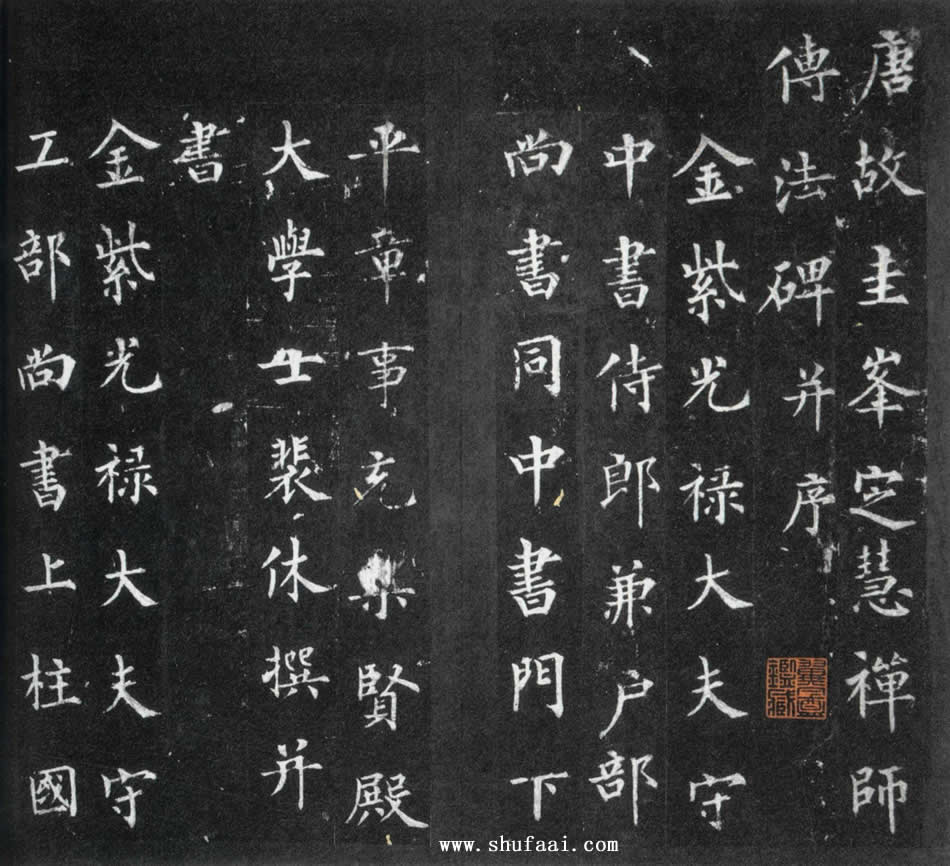 唐故圭峯定慧禪師
傳法碑并序
金紫光禄大夫守
中書侍郎兼户部
尚書同中書門下
平章事充集賢殿
大學士裴休撰并
書
金紫光禄大夫守
工部尚書上柱國
www.shufaai.com